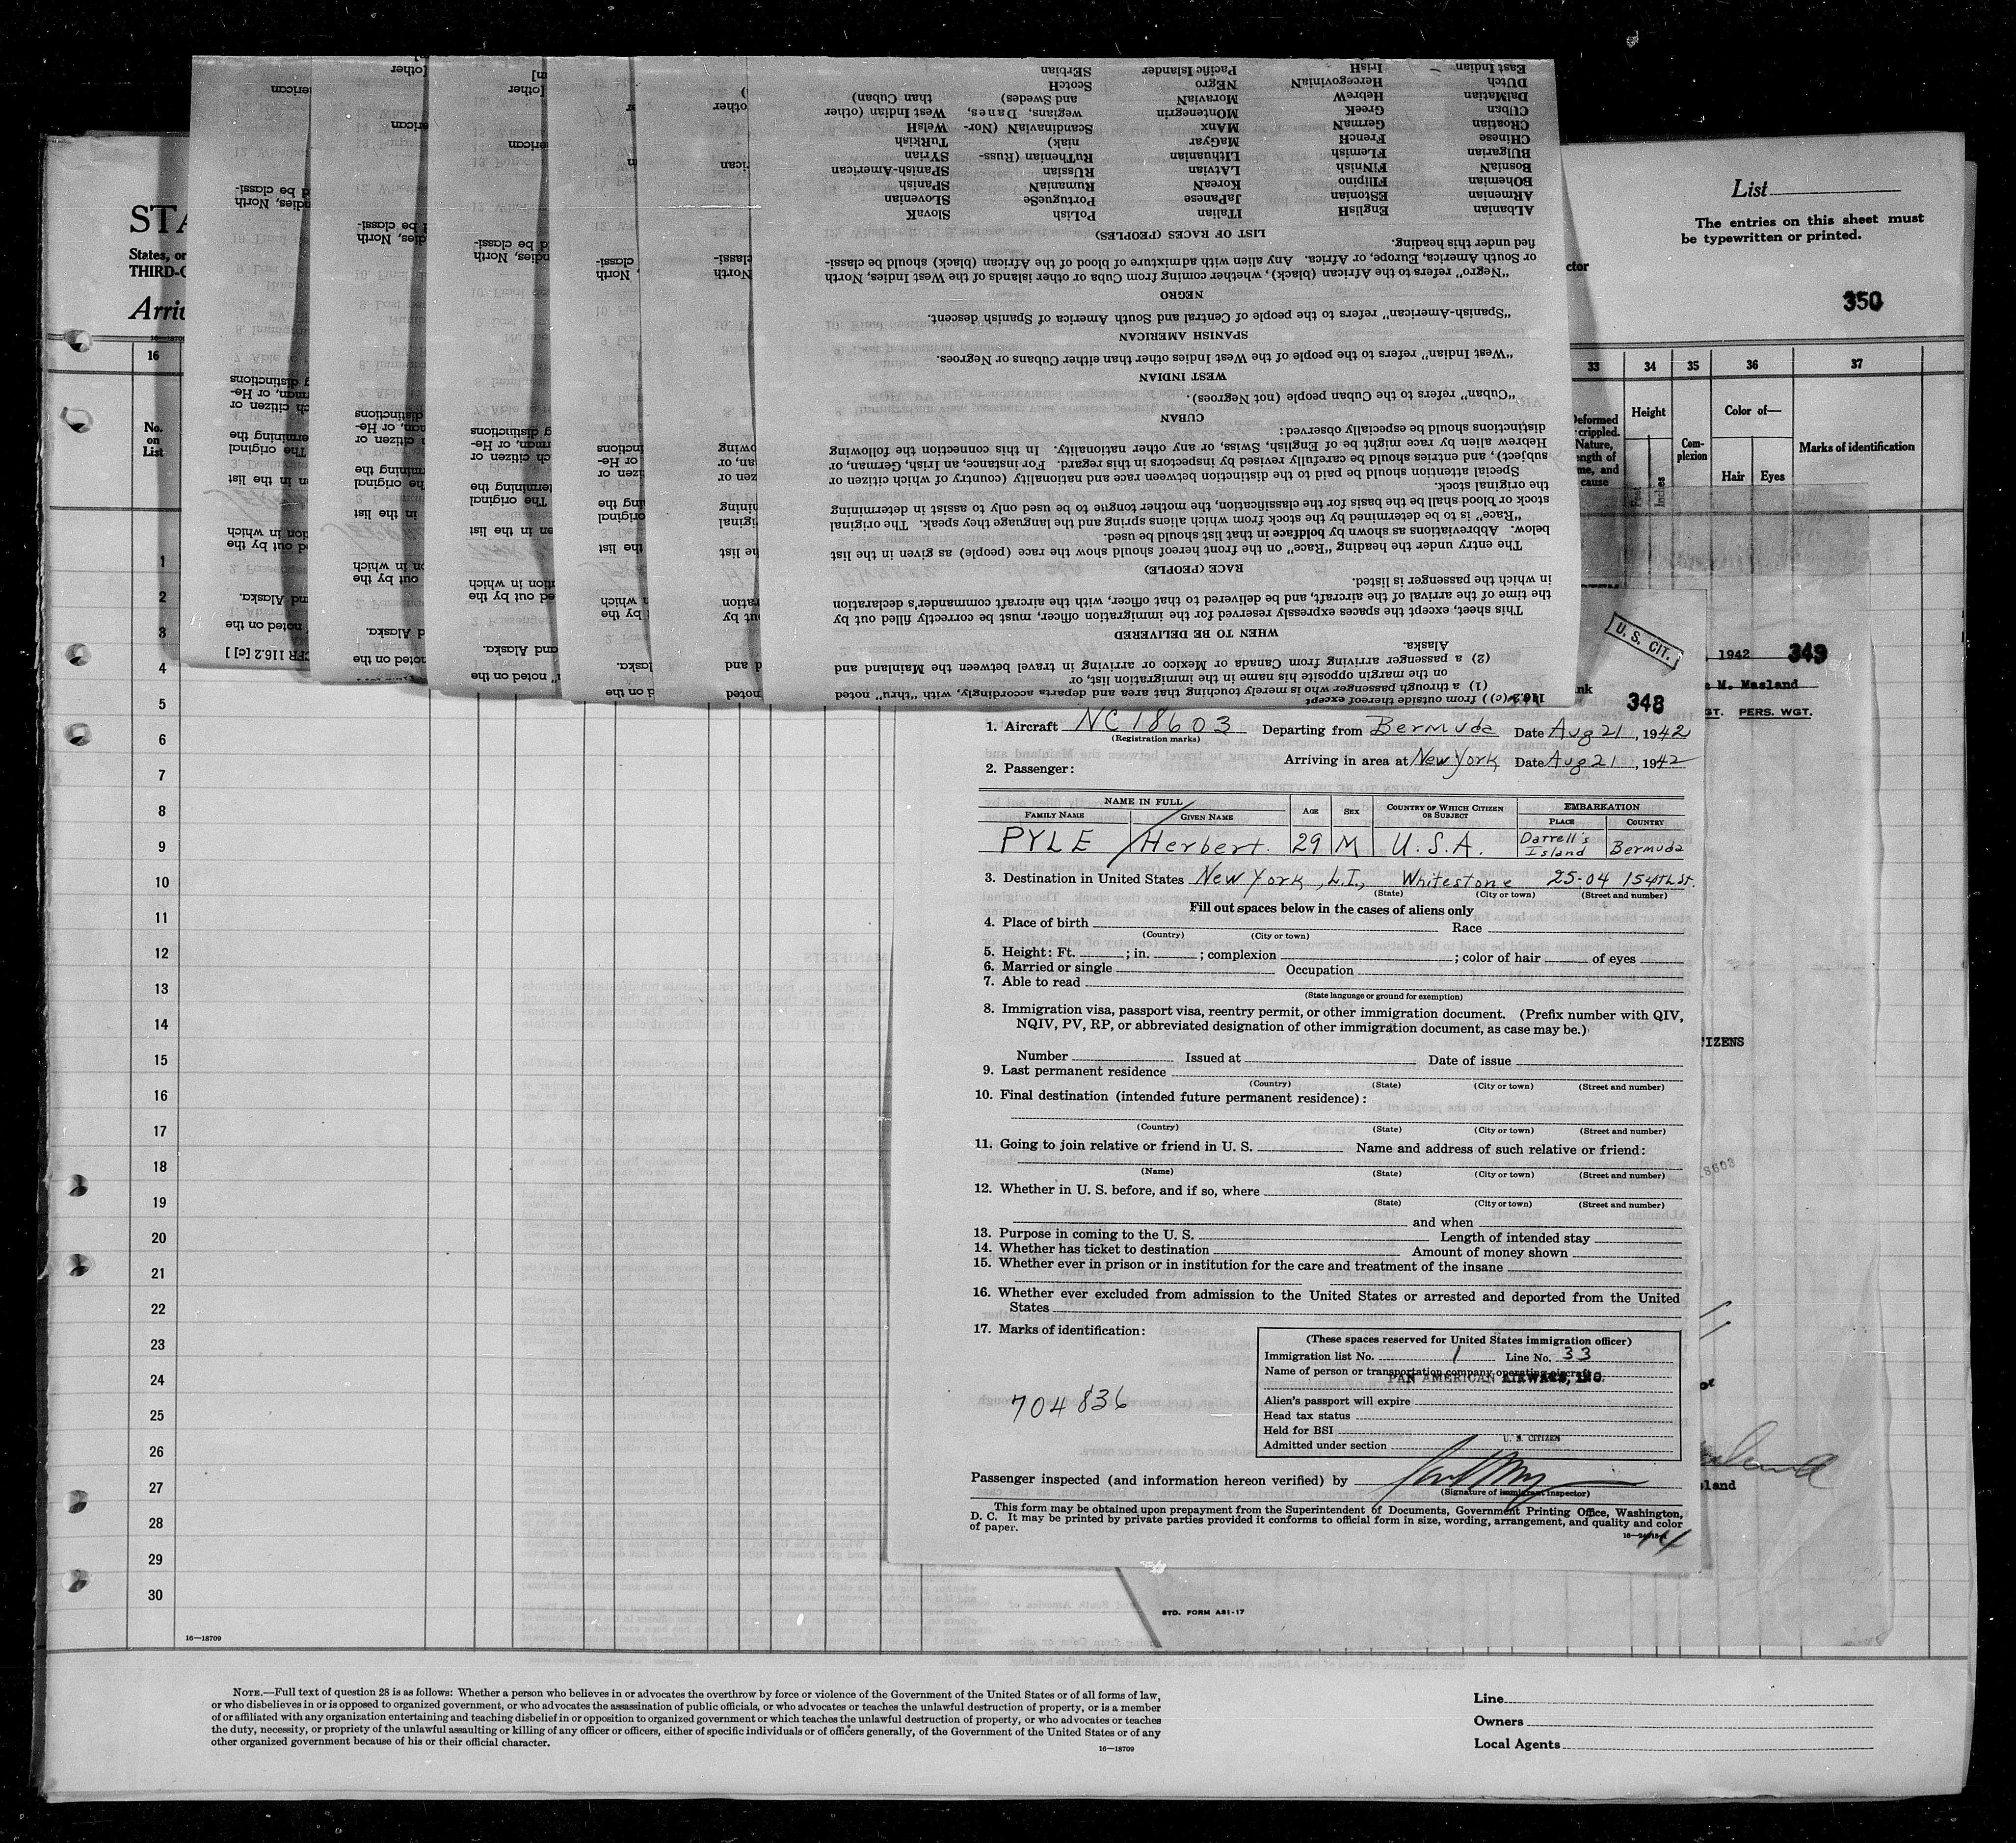 List
The entries on this sheet must
be typewritten or printed.
350
STA
States, or
THIRD-C
Arri
16—18709
16
No.
on
List
33
34
35
36
37
Deformed
crippled.
Nature,
length of
time, and
cause
Height
Feet
Inches
Com-
plexion
Color of—
Hair
Eyes
Marks of identification
1
2
3
4
5
6
7
8
9
10
11
12
13
14
15
16
17
18
19
20
21
22
23
24
25
26
27
28
29
30
16—18709
116.2(c)) from outside thereof except
(1) a through passenger who is merely touching that area and departs accordingly, with "thru" noted
on the margin opposite his name in the immigration list, or
(2) a passenger arriving from Canada or Mexico or arriving in travel between the Mainland and
Alaska.
WHEN TO BE DELIVERED
This sheet, except the spaces expressly reserved for the immigration officer, must be correctly filled out by
the time of the arrival of the aircraft, and be delivered to that officer, with the aircraft commander's declaration
in which the passenger is listed.
RACE (PEOPLE)
The entry under the heading "Race" on the front hereof should show the race (people) as given in the list
below. Abbreviations as shown by boldface in that list should be used.
"Race" is to be determined by the stock from which aliens spring and the language they speak. The original
stock or blood shall be the basis for the classification, the mother tongue to be used only to assist in determining
the original stock.
Special attention should be paid to the distinction between race and nationality (country of which citizen or
subject), and entries should be carefully revised by inspectors in this regard. For instance, an Irish, German, or
Hebrew alien by race might be of English, Swiss, or any other nationality. In this connection the following
distinctions should be especially observed:
CUBAN
"Cuban" refers to the Cuban people (not Negroes).
WEST INDIAN
"West Indian" refers to the people of the West Indies other than either Cubans or Negroes.
SPANISH AMERICAN
"Spanish-American" refers to the people of Central and South America of Spanish descent.
NEGRO
"Negro" refers to the African (black), whether coming from Cuba or other islands of the West Indies, North
or South America, Europe, or Africa. Any alien with admixture of blood of the African (black) should be classi-
fied under this heading.
LIST OF RACES (PEOPLES)
ALbanian EnglisH ITalian PoLish SlovaK
ARmenian EStonian JaPanese PortuguеSe SLOvenian
BOhemian FIlipino KoreaN RumaniaN SPanish
BosniaN FiNnish LAtvian RUssian SPanish-American
BUlgarian FLemish LIthuanian RuThenian (Russ- SYrian
CHinese FrencH MaGyar niak) TuRkish
CRoatian GermaN MAnx ScandinaviaN (Nor- WelsH
CUban GreeK MOntenegrin wegians, Danes, West Indian (other
DalMatian HebreW MoraviaN and Swedes) than Cuban)
DUtch HercegoviniaN NEgro ScotcH
East Indian IrisH Pacific Islander SErbian
U. S. CIT.
348
1942
349
M. Masland
PERS. WGT.
1. Aircraft NC18603 Departing from Bermuda Date Aug 21, 1942
(Registration marks)
Arriving in area at New York Date Aug 21, 1942
2. Passenger:
NAME IN FULL
FAMILY NAME GIVEN NAME AGE SEX COUNTRY OF WHICH CITIZEN OR SUBJECT EMBARKATION
PLACE COUNTRY
PYLE / Herbert. 29 M U.S.A. Darrell's Island Bermuda
3. Destination in United States New York, L.I., Whitestone 25-04 154th St.
(State) (City or town) (Street and number)
Fill out spaces below in the cases of aliens only
4. Place of birth Race
(Country) (City or town)
5. Height: Ft. ; in. ; complexion ; color of hair of eyes
6. Married or single Occupation
7. Able to read
(State language or ground for exemption)
8. Immigration visa, passport visa, reentry permit, or other immigration document. (Prefix number with QIV,
NQIV, PV, RP, or abbreviated designation of other immigration document, as case may be.)
Number Issued at Date of issue
9. Last permanent residence
(Country) (State) (City or town) (Street and number)
10. Final destination (intended future permanent residence):
(Country) (State) (City or town) (Street and number)
11. Going to join relative or friend in U. S. Name and address of such relative or friend:
(Name) (State) (City or town) (Street and number)
12. Whether in U. S. before, and if so, where
(State) (City or town) (Street and number)
and when
13. Purpose in coming to the U. S. Length of intended stay
14. Whether has ticket to destination Amount of money shown
15. Whether ever in prison or in institution for the care and treatment of the insane
16. Whether ever excluded from admission to the United States or arrested and deported from the United
States
17. Marks of identification:
704836
(These spaces reserved for United States immigration officer)
Immigration list No. 1 Line No. 33
Name of person or transportation company operating aircraft
PAN AMERICAN AIRWAYS, INC.
Alien's passport will expire
Head tax status
Held for BSI
U. S. CITIZEN
Admitted under section
Passenger inspected (and information hereon verified) by
(Signature of immigrant inspector)
This form may be obtained upon prepayment from the Superintendent of Documents, Government Printing Office, Washington,
D. C. It may be printed by private parties provided it conforms to official form in size, wording, arrangement, and quality and color
of paper.
STD. FORM AS1-17
NOTE.—Full text of question 28 is as follows: Whether a person who believes in or advocates the overthrow by force or violence of the Government of the United States or of all forms of law,
or who disbelieves in or is opposed to organized government, or who advocates the assassination of public officials, or who advocates or teaches the unlawful destruction of property, or is a member
of or affiliated with any organization entertaining and teaching disbelief in or opposition to organized government or which teaches the unlawful destruction of property, or who advocates or teaches
the duty, necessity, or propriety of the unlawful assaulting or killing of any officer or officers, either of specific individuals or of officers generally, of the Government of the United States or of any
other organized government because of his or their official character.
16—18709
Line
Owners
Local Agents